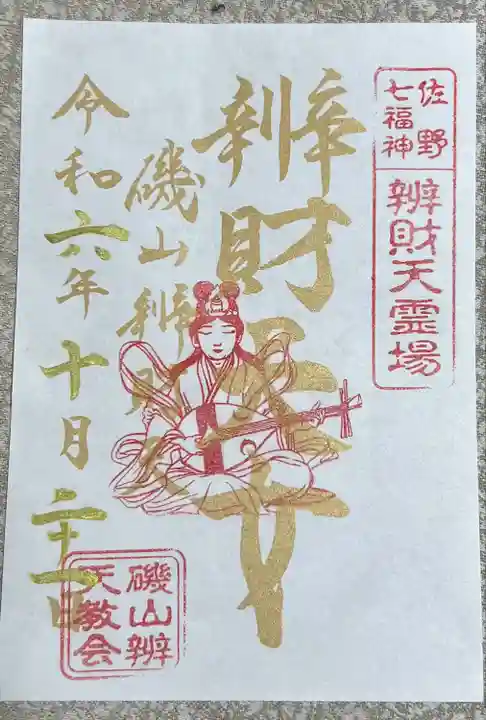 佐野
七福神
辨財天霊場
辨財天
磯山辨財天
令和六年十月二十一日
磯山辨
天教会